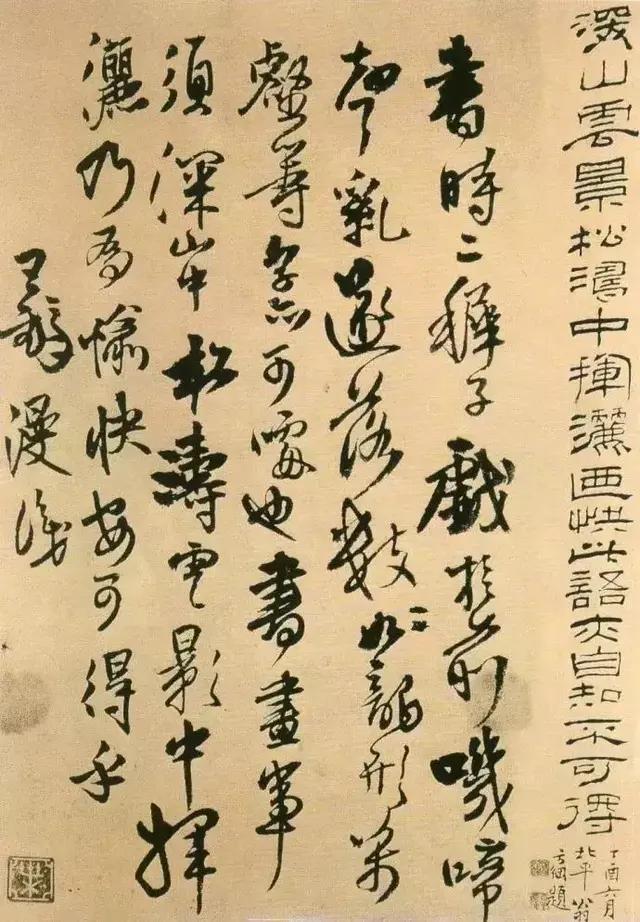 深山雲景松濤中揮灑快此語亦自知不可得
丁酉六月
北平翁
方綱題
書時二稚子戲於前嘰啼
聲亂遂落數如龍形萬
壑等字亦可噱也書畫事
須深山中松濤雲影中揮
灑乃為愉快安可得乎
王鐸漫識